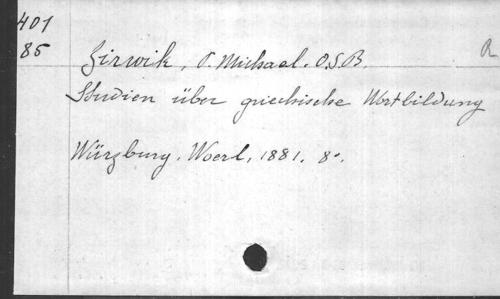 401
85
Zirwik, P. Michael. O.S.B.
R
Studien über griechische Wortbildung
Würzburg. Woerl, 1881. 8°.